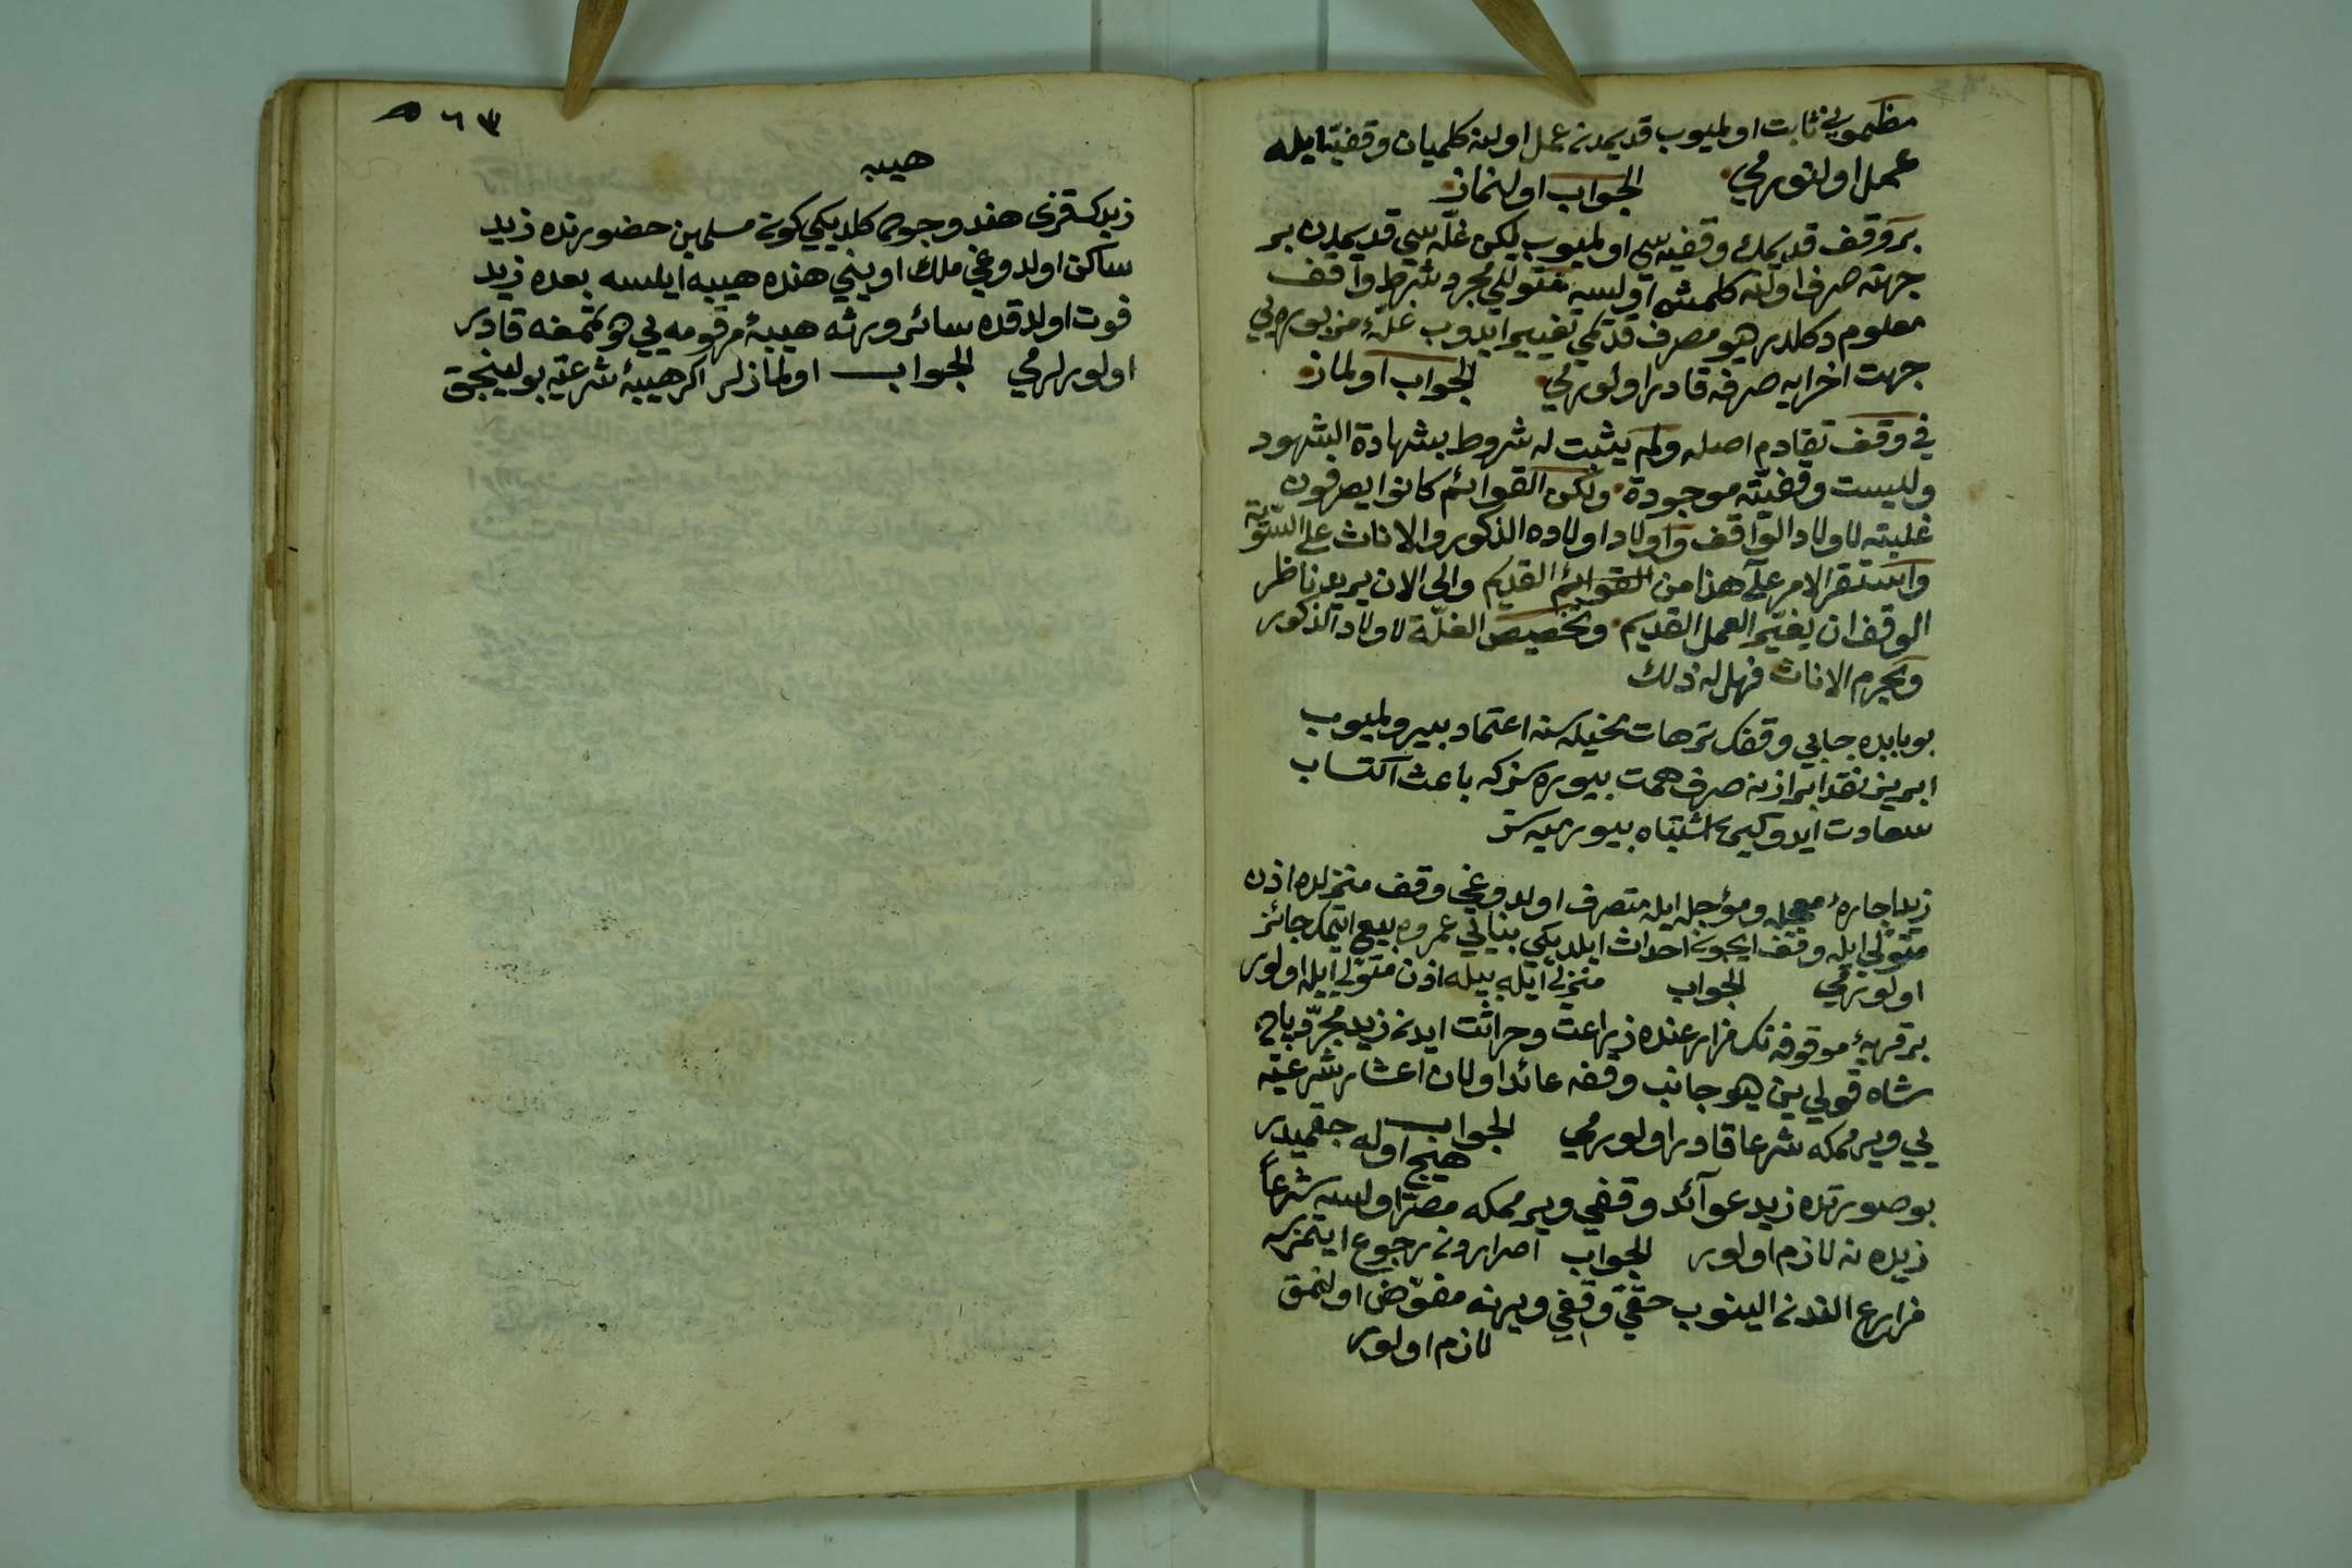 مظمونى ثابت اولميوب قديمدنه عمل اولنه كلميان وقفيّه ايله
عمل اولنورمي الجواب اولنماز
بر وقف قديمك وقفيه سى اولميوب ليكن غلّه سي قديمدن بر
جهته صرف اولنه كلمش اولسه متولي مجرد شرط واقف
معلوم دكلدر ديو مصرف قديمي تغيير ايدوب غلّهٔ مزبوره يي
جهت اخرايه صرفه قادر اولورمي الجواب اولماز
في وقف تقادم اصله ولم يثبت له شروط بشهادة الشهود
وليست وقفيّته موجودة ولكن القوائم كانوا يصرفون
غلبته لاولاد الواقف واولاد اولاده الذكور والاناث على السّوية
واستقر الامر على هذا من القوائم القديم والى الان يريد ناظر
الوقف ان يغيّر العمل القديم وتخصيص الغلّة لاولاد الذكور
ويحرم الاناث فهل له ذلك
بو بابده جابي وقفك ترهات تخيله سنه اعتماد بيورلميوب
ابريز نقد ابرازنه صرف همت بيوره سز كه باعث اكتساب
سعادت ايدوكي اشتباه بيورميه سز
زيد اجارهٔ معجله ومؤجله ايله متصرف اولدوغي وقف منزلده اذن
متولي ايله وقف ايچون احداث ايلديكي بنايي عمروه بيع ايتمك جائز
اولورمي الجواب منزلي ايله بيله اذن متولي ايله اولور
بر قريهٔ موقوفه نك مزارعنده زراعت وحراثت ايدن زيد مجرّد
شاه قولي ين ديو جانب وقفه عائد اولان اعشار شرعيّه
يي ويرممكه شرعا قادر اولورمي الجواب هيچ اوله جقميدر
بو صورتده زيد عوائد وقفي ويرممكه مصرّ اولسه شرعاً
زيده نه لازم اولور الجواب اصرارندن رجوع ايتمزسه
مزارع الندن الينوب حقّي وقفي ويرنه مفوّض اولنمق
لازم اولور
٦٣
هيبه
زيدك قزى هند وجوها كلديكي كون مسلمين حضورنده زيد
ساكن اولدوغي ملك اويني هنده هيبه ايلسه بعده زيد
فوت اولدقده سائر ورثه هيبهٔ مرقومه يي طوتمغه قادر
اولورلرمي الجواب اولمازلر اكر هيبهٔ شرعيّه بولينجق